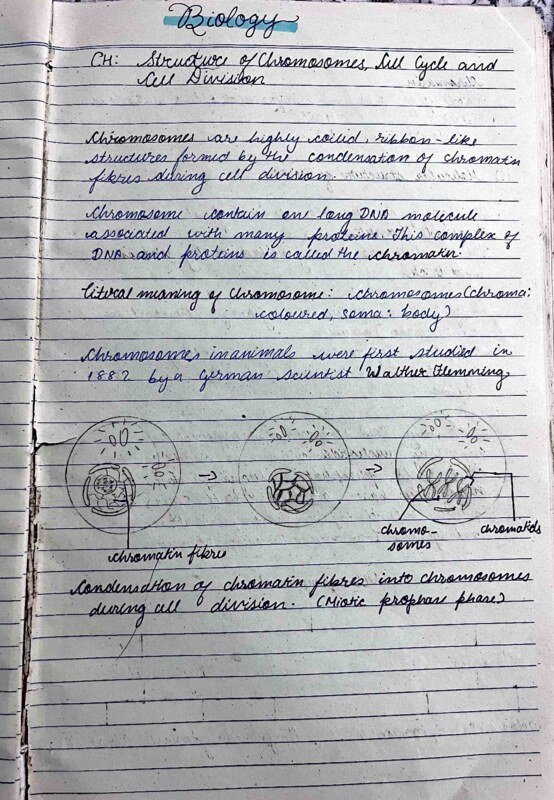 Biology
CH: Structure of Chromosomes, Cell Cycle and
Cell Division
Chromosomes are highly coiled, ribbon-like
structures formed by the condensation of chromatin
fibres during cell division
Chromosome contain one long DNA molecule
associated with many proteins. This complex of
DNA and proteins is called the chromatin.
Literal meaning of Chromosome: chromosomes (chroma:
coloured, soma: body)
Chromosomes in animals were first studied in
1882 by a German scientist Walther Flemming
chromatin fibre
chromo-
somes
chromatids
Condensation of chromatin fibres into chromosomes
during cell division. (Miotic prophase phase)